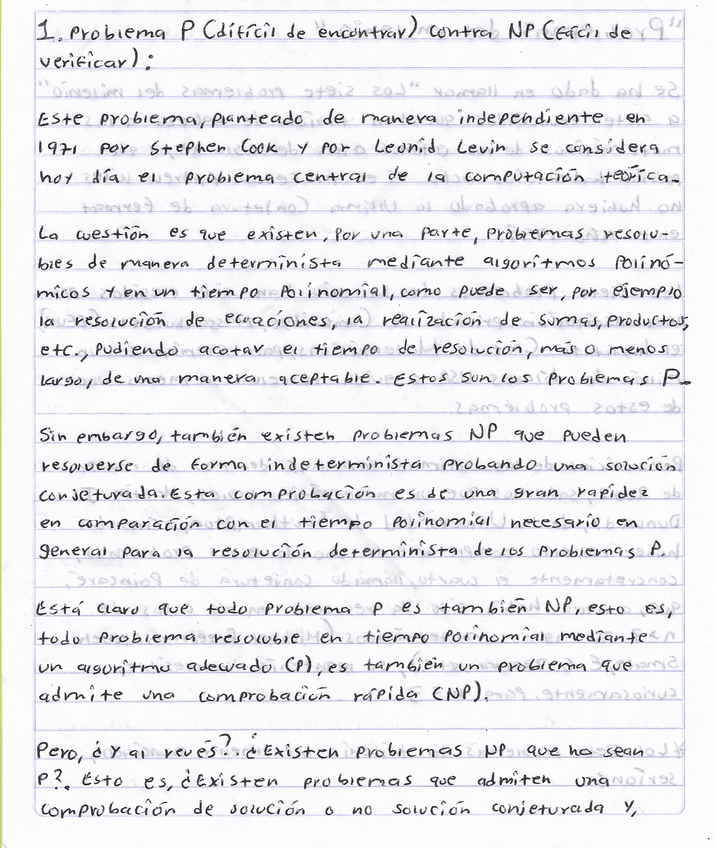 1. Problema P (difícil de encontrar) contra NP (fácil de
verificar):
Este problema, planteado de manera independiente en
1971 por Stephen Cook y por Leonid Levin se considera
hoy día el problema central de la computación teórica.
La cuestión es que existen, por una parte, problemas resolu-
bles de manera determinista mediante algoritmos polinó-
micos y en un tiempo polinomial, como puede ser, por ejemplo
la resolución de ecuaciones, la realización de sumas, productos,
etc., pudiendo acotar el tiempo de resolución, más o menos
largo, de una manera aceptable. Estos son los problemas P.
Sin embargo, también existen problemas NP que pueden
resolverse de forma indeterminista probando una solución
conjeturada. Esta comprobación es de una gran rapidez
en comparación con el tiempo polinomial necesario en
general para la resolución determinista de los problemas P.
Está claro que todo problema P es también NP, esto es,
todo problema resoluble en tiempo polinomial mediante
un algoritmo adecuado (P), es también un problema que
admite una comprobación rápida (NP).
Pero, ¿Y al revés?. ¿Existen problemas NP que no sean
P?. Esto es, ¿Existen problemas que admiten una
comprobación de solución o no solución conjeturada y,